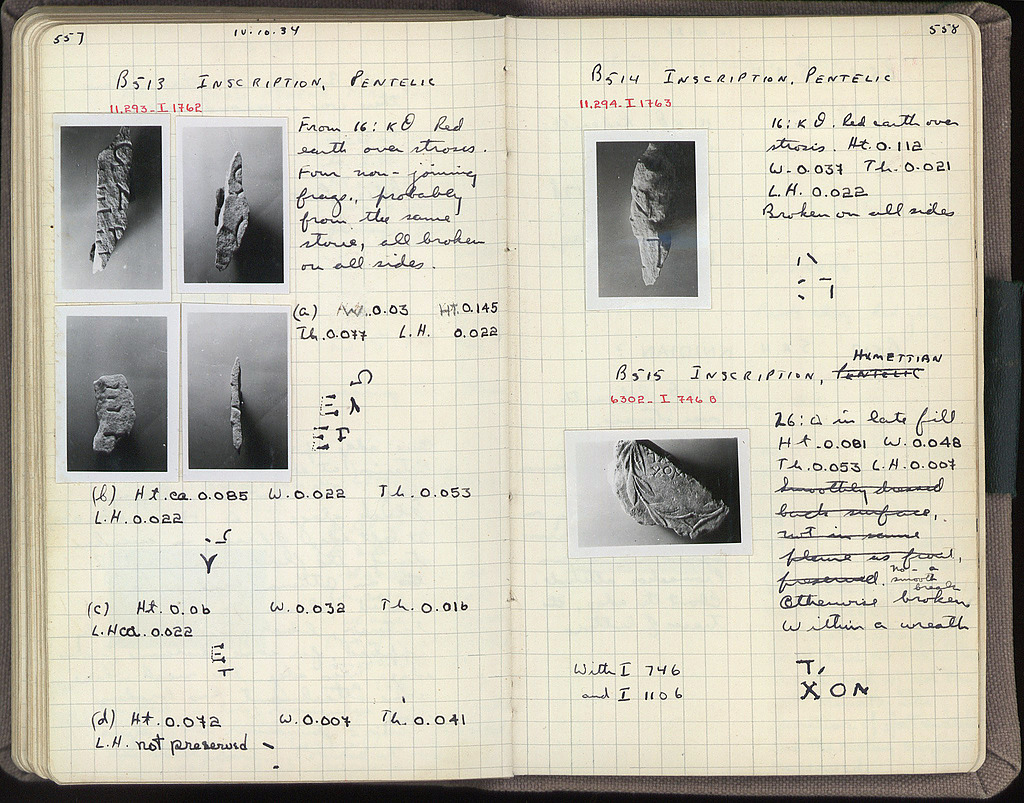 557
IV.10.34
B513 INSCRIPTION, PENTELIC
11.293-I 1762
From 16: KΘ Red
earth over strosis.
Four non-joining
frags., probably
from the same
stone, all broken
on all sides.
(a) W.0.03 Ht.0.145
Th.0.077 L.H. 0.022
(b) Ht.ca.0.085 W.0.022 Th.0.053
L.H.0.022
(c) Ht.0.06 W.0.032 Th.0.016
L.Hca.0.022
(d) Ht.0.072 W.0.007 Th.0.041
L.H. not preserved -
558
B514 INSCRIPTION, PENTELIC
11.294-I 1763
16: KΘ. Red earth over
strosis. Ht.0.112
W.0.037 Th.0.021
L.H. 0.022
Broken on all sides
HYMETTIAN
B515 INSCRIPTION, PENTELIC
6302-I 746 B
26: Δ in late fill
Ht.0.081 W.0.048
Th.0.053 L.H.0.007
Smoothly dressed
back surface,
not in same
plane as front,
preserved. not a
smooth
break
Otherwise broken
Within a wreath
With I 746
and I 1106
T,
XON